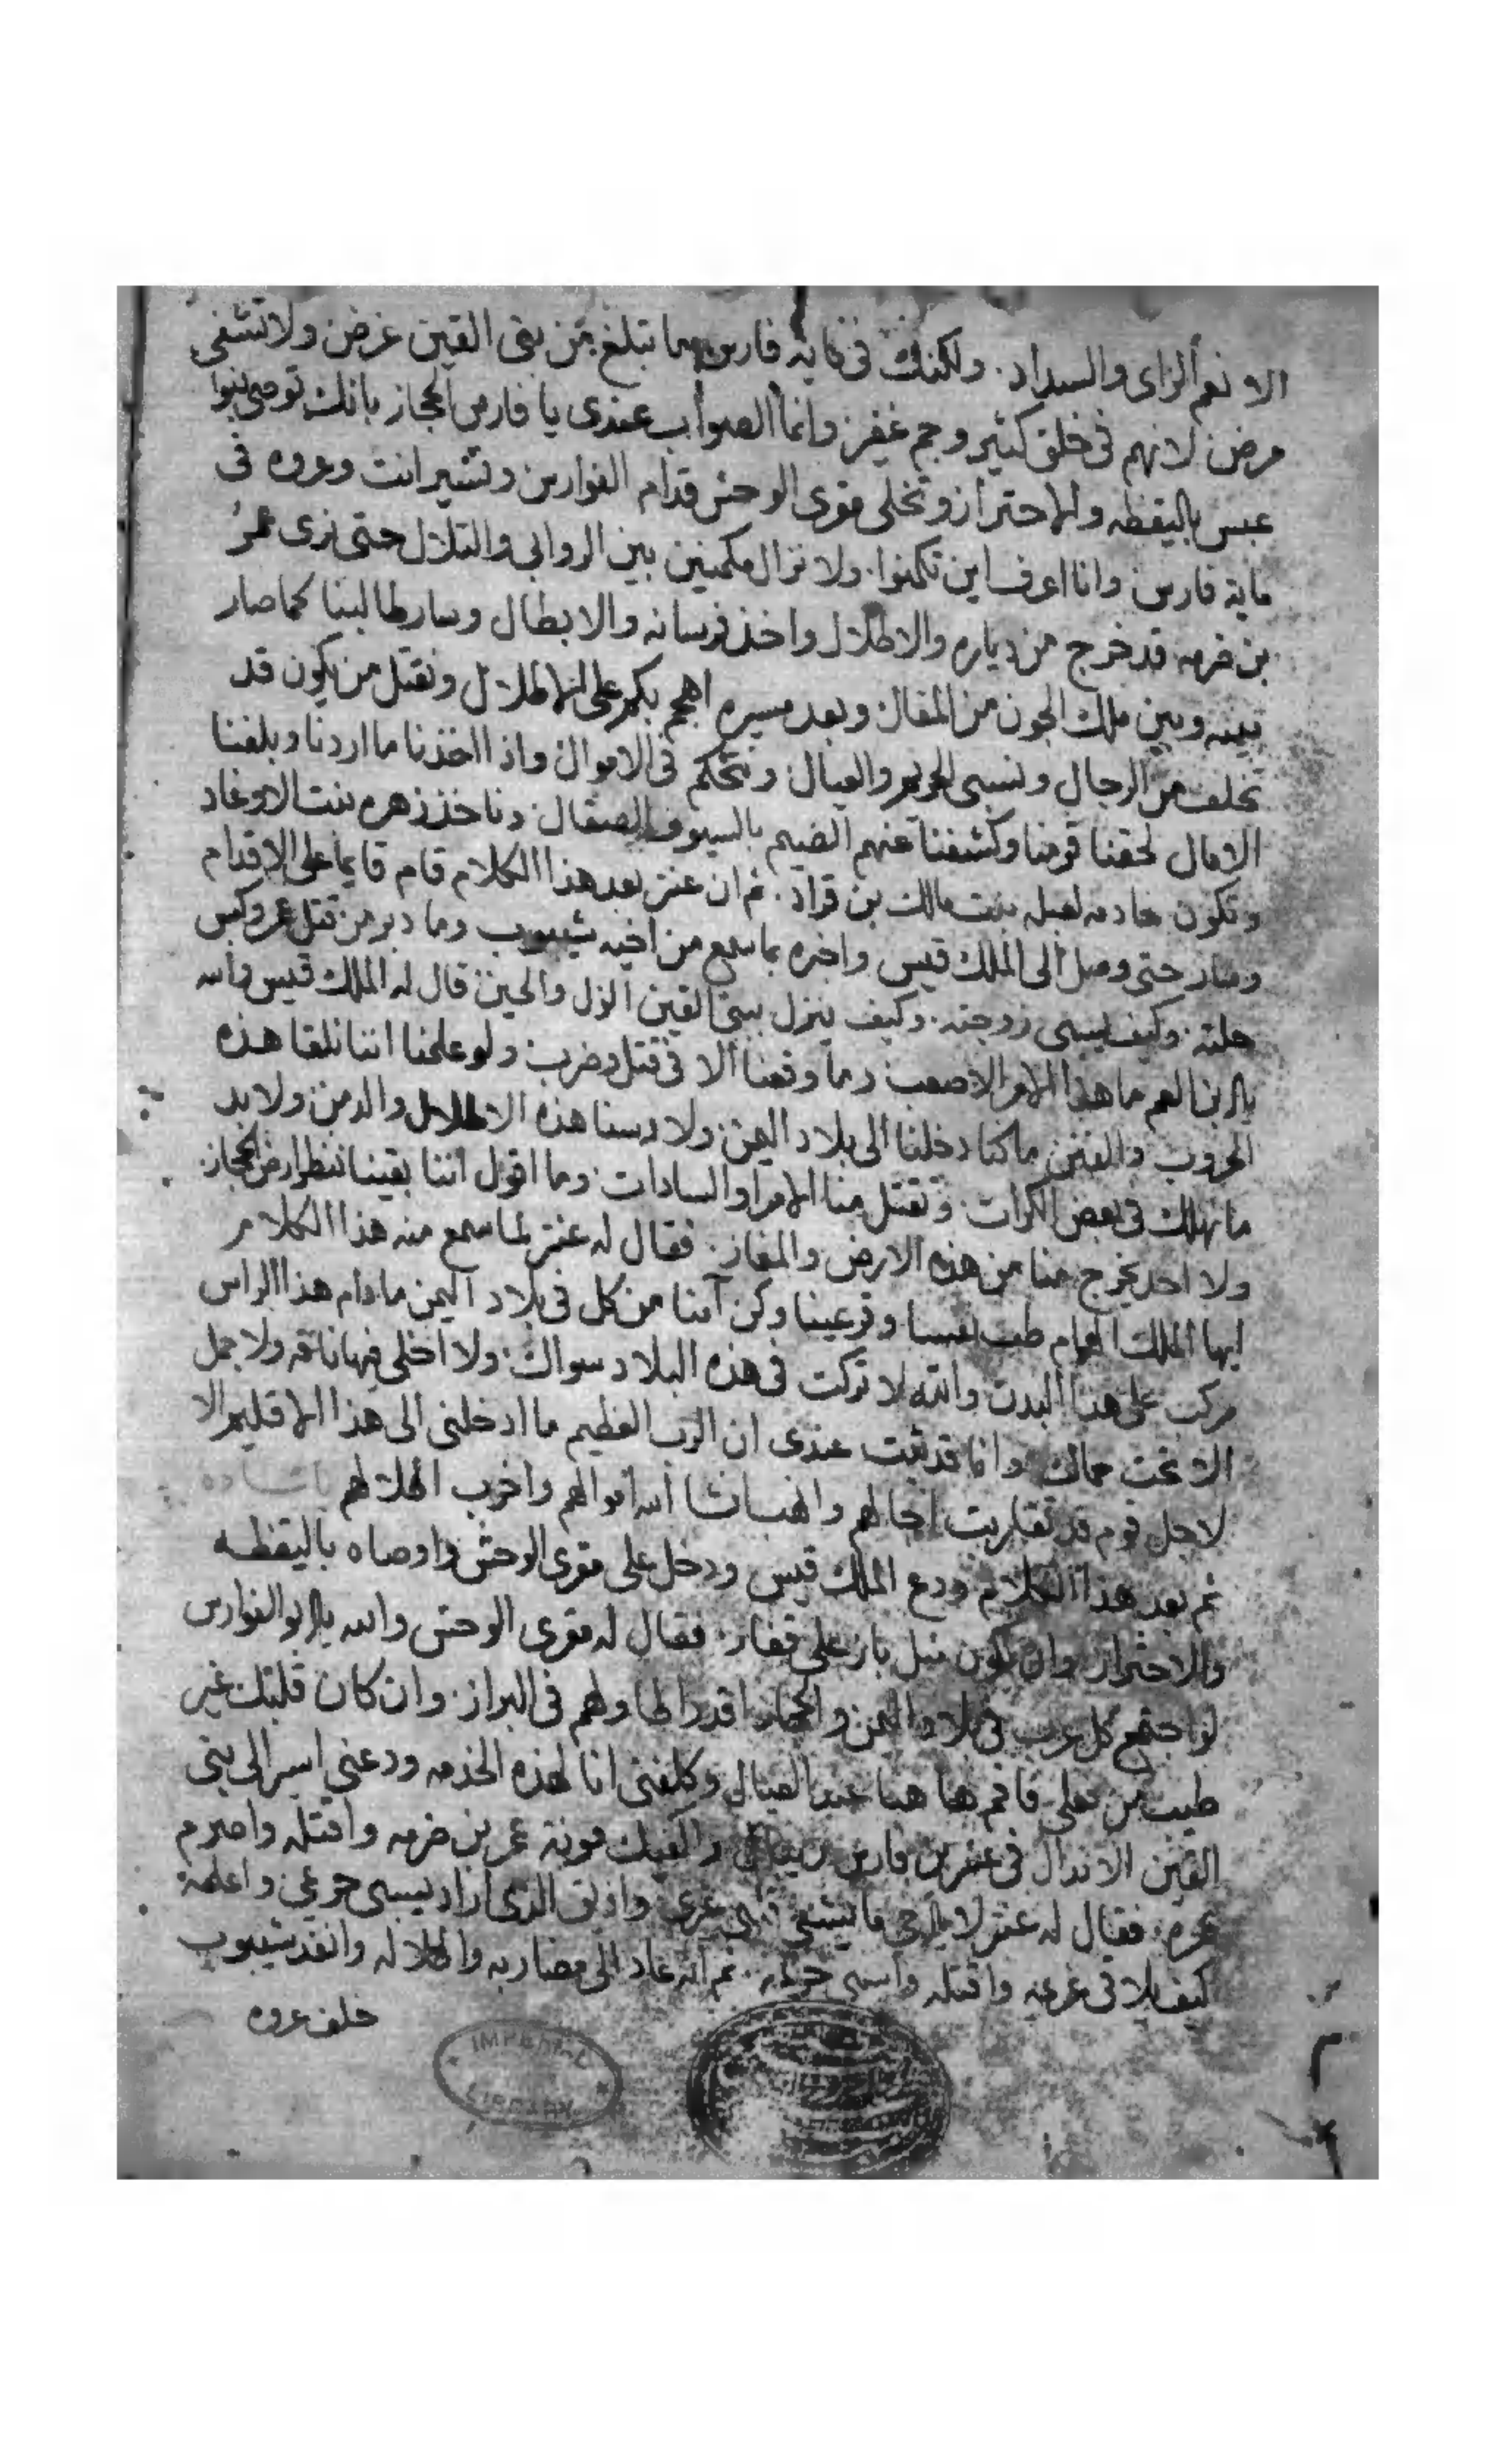 الا نعم الراى والسداد. ولكنك فى ماية فارس ما تبلغ من بنى القين غرض ولا تشفى
مرض لانهم فى خلق كثير وجم غفير وانما الصواب عندى يا فارس الحجاز بانك توصى بنوا
عبس باليقظه والاحتراز وتخلى مقرى الوحش قدام الفوارس وتسير انت وعروه فى
ماية فارس وانا اعرف اين تكمنوا. ولا نزال مكمنين بين الروابى والتلال حتى نرى عمر
بن خرمه قد خرج من دياره والاطلال واخذ فرسانه والابطال وسار طالبنا كما صار
بينه وبين ملك الجون من المقال وبعد مسيره اهجم بكم على الاطلال ونقتل من يكون قد
تخلف من الرجال ونسبى الحريم والعيال ونتحكم فى الاموال واذا اخذنا ما اردنا وبلغنا
الامال لحقنا قومنا وكشفنا عنهم الضيم بالسيوف الصقال وناخذ زهره بنت الاوغاد
وتكون خادمه لعبله بنت مالك بن قراد. ثم ان عنتر بعد هذا الكلام قام قايما على الاقدام
وسار حتى وصل الى الملك قيس واخبره بما سمع من اخيه شيبوب وما دبر من قتل عمر وكبس
حلته. وكيف يسبى زوجته. وكيف ينزل ببنى القين الذل والحين قال له الملك قيس والله
يا ابن العم ما هذا الامر الا صعب وما وقعنا الا فى قتل وضرب ولو علمنا اننا نلقا هذه
الحروب والفتن ما كنا دخلنا الى بلاد اليمن ولا دسنا هذه الاطلال والدمن ولا بد
ما نهلك فى بعض الكرات وتقتل منا الامرا والسادات وما اقول اننا بقينا ننظر ارض الحجاز
ولا احد يخرج منا من هذه الارض والمفاز. فقال له عنتر لما سمع منه هذا الكلام
ايها الملك الهمام طب نفسا وقر عينا وكن آمنا من كل فى بلاد اليمن ما دام هذا الراس
مركب على هذا البدن والله لا تركت فى هذه البلاد سواك ولا اخلى فيها ناقه ولا جمل
الا تحت حماك وانما قد ثبت عندى ان الرب العظيم ما ادخلنى الى هذا الاقليم الا
لاجل قوم قد تقاربت اجالهم وانهب انشا الله اموالهم واخرب اطلالهم
ثم بعد هذا الكلام ودع الملك قيس ودخل على مقرى الوحش واوصاه باليقظه
والاحتراز وان يكون مثل باز على قفاز. فقال له مقرى الوحش والله يا ابو الفوارس
لو اجتمع كل عرب فى بلاد اليمن والحجاز اقدر الهاولهم فى البراز. وان كان قلبك غير
طيب من فعلى فاقم ها هنا عند العيال وكلفنى انا لهذه الخدمه ودعنى اسير الى بنى
القين الاندال فى عشرين فارس واكفيك مونة عمر بن خرمه واقتله واصرم
عمره. فقال له عنتر لا يا اخى ما يشفى قلبى غيرى واذيق الذى اراد يسبى حريمى واعلمه
كيف يلاقى غريمه واقتله واسبى حريمه. ثم انه عاد الى مضاربه واطلاله وانفذ شيبوب
خلف عروه
IMPERIAL LIBRARY